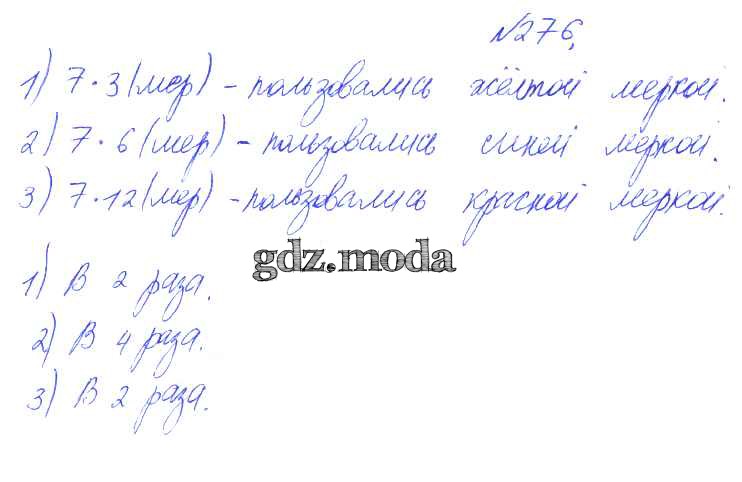 №276.
1) 7·3 (мер) - пользовались жёлтой меркой.
2) 7·6 (мер) - пользовались синей меркой.
3) 7·12 (мер) - пользовались красной меркой.
gdz.moda
1) В 2 раза.
2) В 4 раза.
3) В 2 раза.